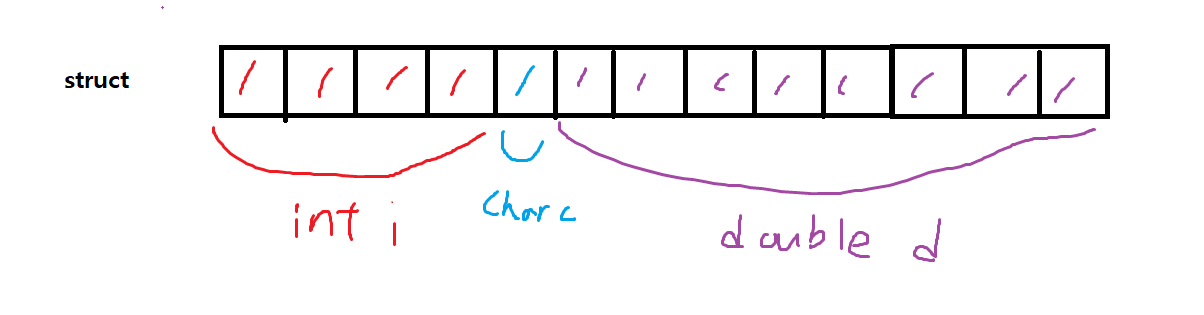 struct
int i
char c
double d